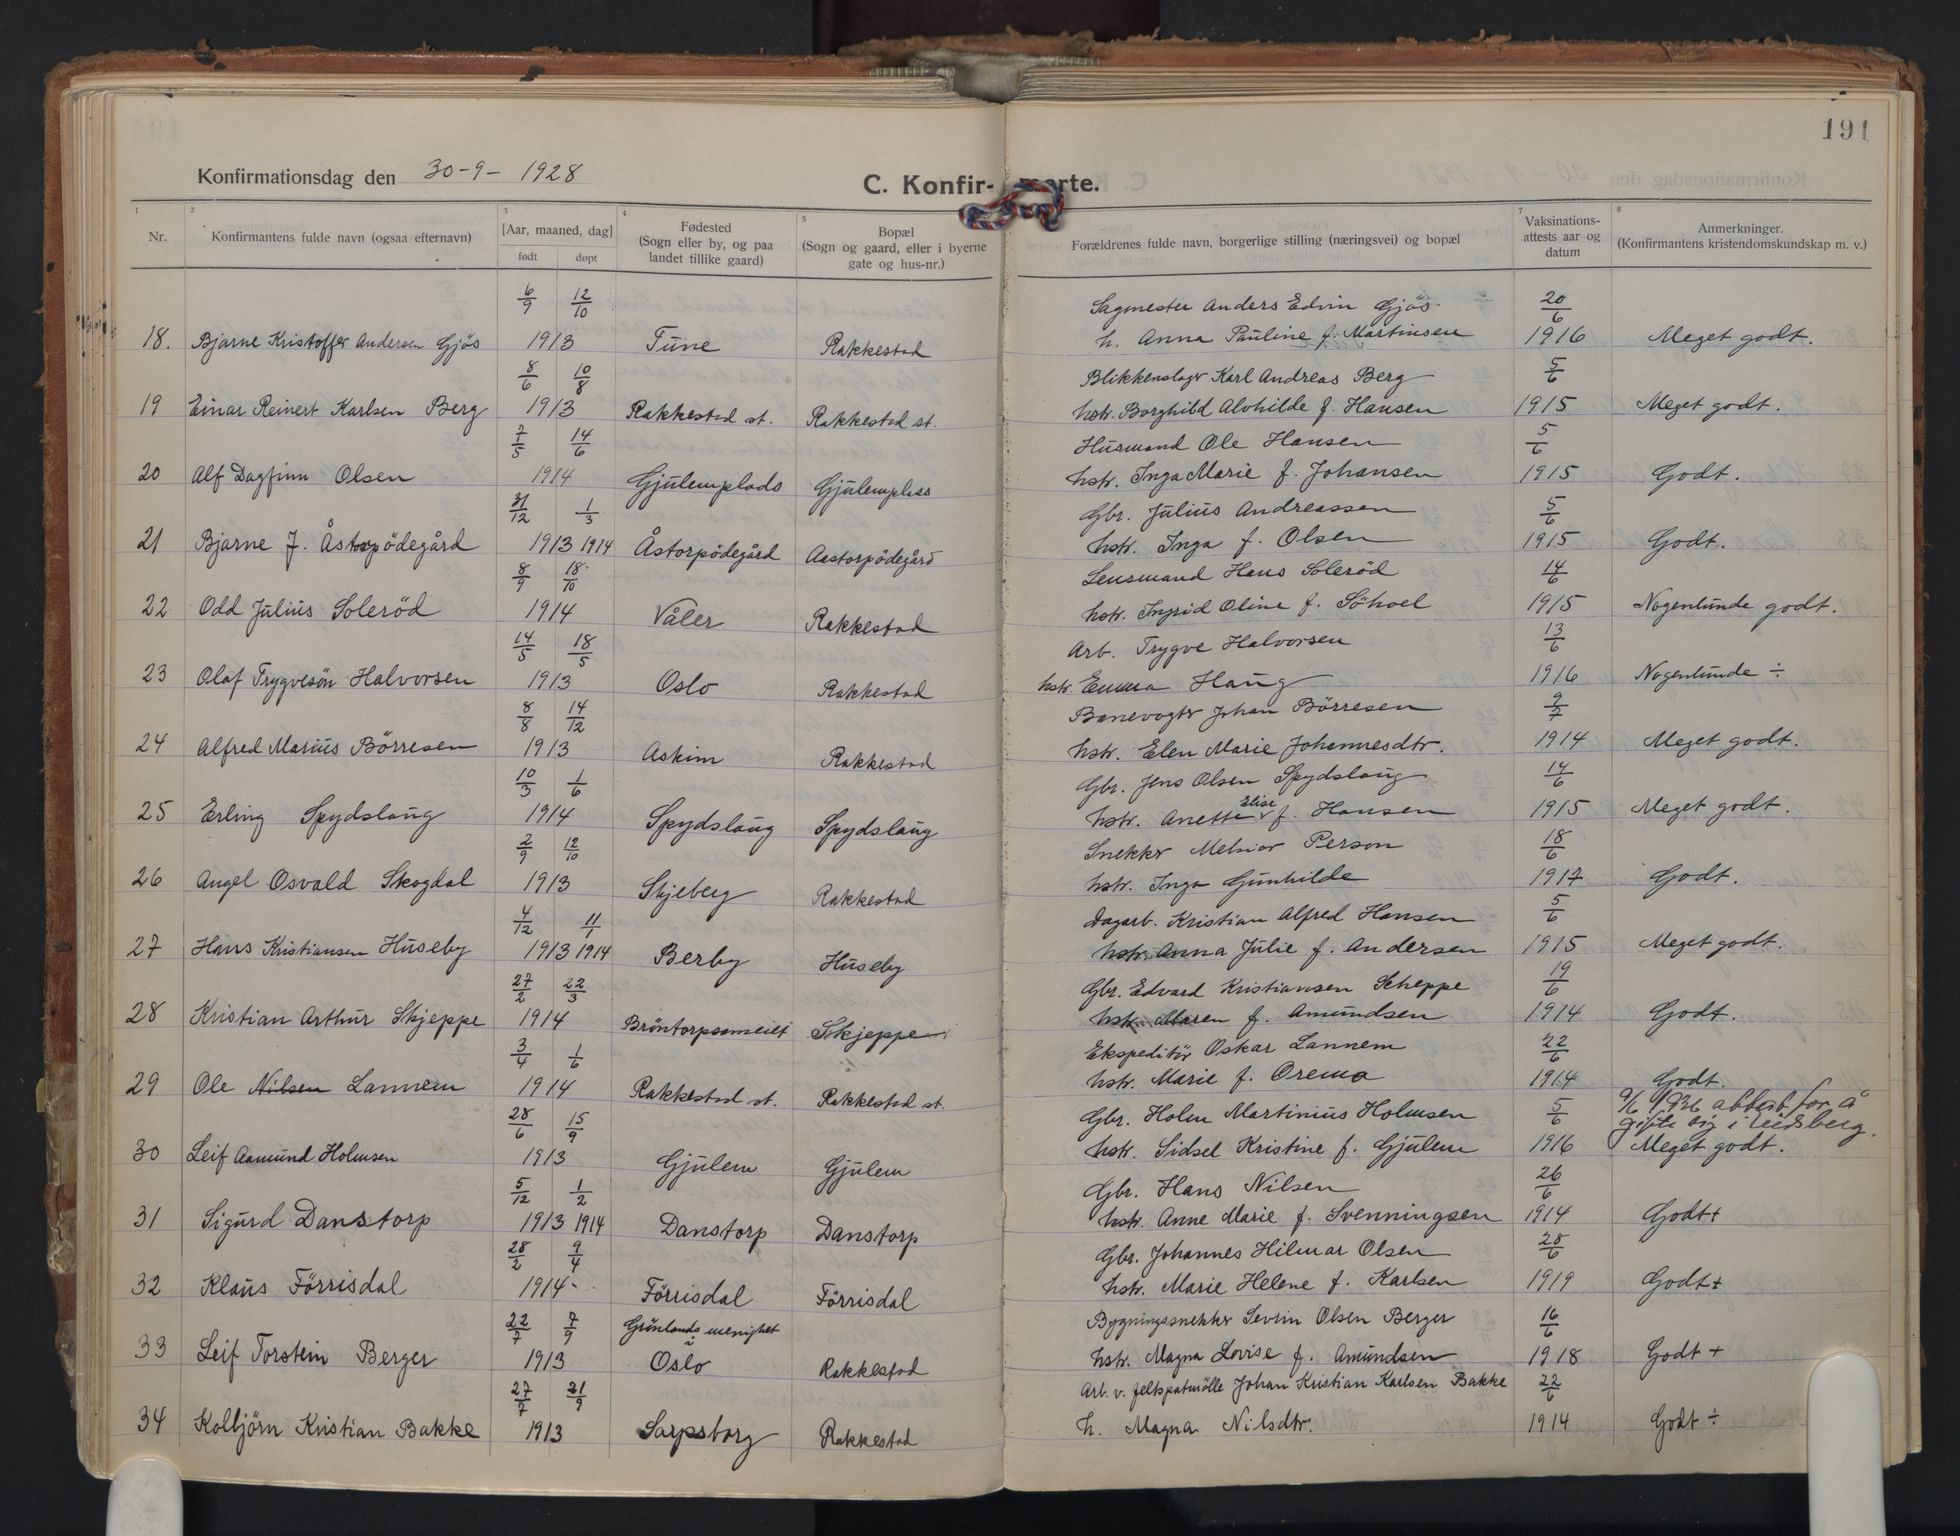 191
Konfirmationsdag den 30-9-1928
C. Konfir- merte.
1 2 3 4 5 7 8
Nr. Konfirmantens fulde navn (ogsaa efternavn) [Aar, maaned, dag] født døpt Fødested (Sogn eller by, og paa landet tillike gaard) Bopæl (Sogn og gaard, eller i byerne gate og hus-nr.) Forældrenes fulde navn, borgerlige stilling (næringsvei) og bopæl Vaksinations-attests aar og datum Anmerkninger. (Konfirmantens kristendomskundskap m. v.)
6/9 12/10 Sagmester Anders Edvin Gjös 20/6
18. Bjarne Kristoffer Andersen Gjös 1913 Tune Rakkestad h. Anna Pauline f. Martinsen 1916 Meget godt.
8/6 10/8 Blikkenslager Karl Andreas Berg 5/6
19 Einar Reinert Karlsen Berg 1913 Rakkestad st. Rakkestad st. hstr. Borghild Alvhilde f. Hansen 1915 Meget godt.
7/5 14/6 Husmand Ole Hansen 5/6
20 Alf Dagfinn Olsen 1914 Gjulemplads Gjulemplass hstr. Inga Marie f. Johansen 1915 Godt.
31/12 1/3 Gbr. Julius Andreassen 5/6
21 Bjarne J. Åstorpödegård 1913 1914 Åstorpödegård Aastorpödegård hstr. Inga f. Olsen 1915 Godt.
8/9 18/10 Lensmand Hans Soleröd 14/6
22 Odd Julius Soleröd 1914 Våler Rakkestad hstr. Ingrid Oline f. Söhoel 1915 Nogenlunde godt.
14/5 18/5 Arb. Trygve Halvorsen 13/6
23 Olaf Trygvesön Halvorsen 1913 Oslo Rakkestad hstr. Emma Haug 1916 Nogenlunde ÷
8/8 14/12 Banevogter Johan Börresen 9/7
24 Alfred Marius Börresen 1913 Askim Rakkestad hstr. Elen Marie Johannesdtr. 1914 Meget godt.
10/3 1/6 Gbr. Jens Olsen Spydslaug 14/6
25 Erling Spydslaug 1914 Spydslaug Spydslaug hstr. Anette Elise f. Hansen 1915 Meget godt.
2/9 12/10 Snekker Melvior Person 18/6
26 Angel Osvald Skogdal 1913 Skjeberg Rakkestad hstr. Inga Gunhilde 1917 Godt.
4/12 11/1 Dagarb. Kristian Alfred Hansen 5/6
27 Hans Kristiansen Huseby 1913 1914 Berby Huseby hstr. Anna Julie f. Andersen 1915 Meget godt.
27/2 22/3 Gbr. Edvard Kristiansen Scheppe 19/6
28 Kristian Arthur Skjeppe 1914 Bröntorpsameiet Skjeppe hstr. Maren f. Amundsen 1914 Godt.
3/4 1/6 Ekspeditör Oskar Lannem 22/6
29 Ole Nilsen Lannem 1914 Rakkestad st. Rakkestad st. hstr. Marie f. Orema 1914 Godt.
28/6 15/9 Gbr. Holm Martinius Holmsen 5/6 9/6 1936 attest for å gifte sig i Eidsberg.
30 Leif Aamund Holmsen 1913 Gjulem Gjulem hstr. Sidsel Kristine f. Gjulem 1916 Meget godt.
5/12 1/2 Gbr. Hans Nilsen 26/6
31 Sigurd Danstorp 1913 1914 Danstorp Danstorp hstr. Anne Marie f. Svenningsen 1914 Godt+
28/2 9/4 Gbr. Johannes Hilmar Olsen 28/6
32 Klaus Förrisdal 1914 Förrisdal Förrisdal hstr. Marie Helene f. Karlsen 1919 Godt+
22/7 7/9 Grönlands menighet i Bygningssnekker Sevrin Olsen Berger 16/6
33 Leif Torstein Berger 1913 Oslo Rakkestad hstr. Magna Lovise f. Amundsen 1918 Godt +
27/7 21/9 Arb. v. feltspatmölle Johan Kristian Karlsen Bakke 22/6
34 Kolbjörn Kristian Bakke 1913 Sarpsborg Rakkestad h. Magna Nilsdtr. 1914 Godt ÷